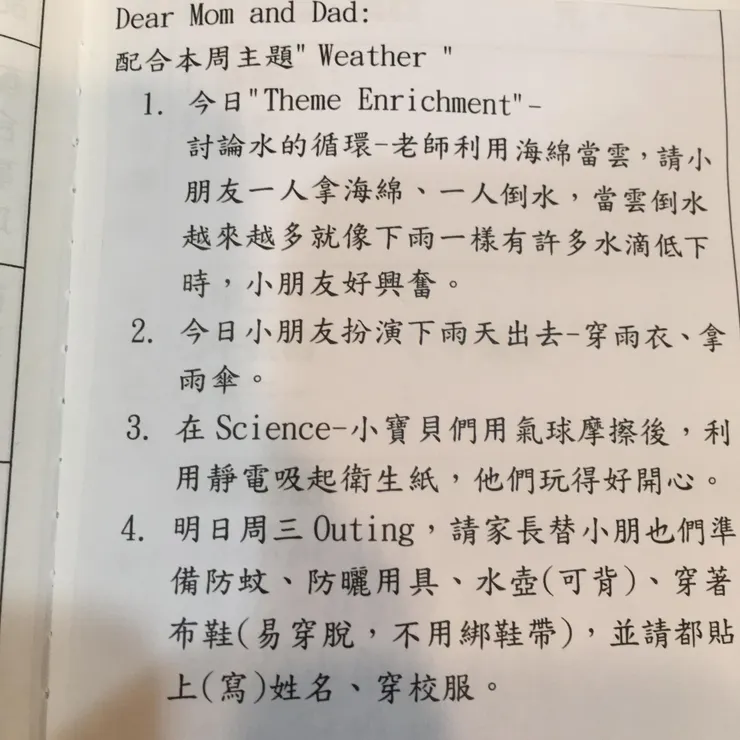 Dear Mom and Dad:
配合本周主題" Weather "
1. 今日"Theme Enrichment"-
討論水的循環-老師利用海綿當雲，請小
朋友一人拿海綿、一人倒水，當雲倒水
越來越多就像下雨一樣有許多水滴低下
時，小朋友好興奮。
2. 今日小朋友扮演下雨天出去-穿雨衣、拿
雨傘。
3. 在 Science-小寶貝們用氣球摩擦後，利
用靜電吸起衛生紙，他們玩得好開心。
4. 明日周三 Outing，請家長替小朋也們準
備防蚊、防曬用具、水壺(可背)、穿著
布鞋(易穿脫，不用綁鞋帶)，並請都貼
上(寫)姓名、穿校服。